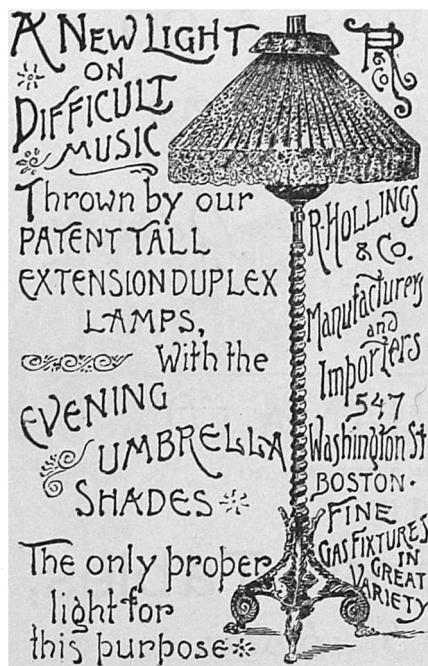 A NEW LIGHT
ON
DIFFICULT
MUSIC
Thrown by our
PATENT TALL
EXTENSION DUPLEX
LAMPS,
With the
EVENING
UMBRELLA
SHADES
The only proper
light for
this purpose
RH
& Co
R. HOLLINGS
& Co.
Manufacturers
and
Importers
547
Washington St
BOSTON.
FINE
GAS FIXTURES
IN
GREAT
VARIETY